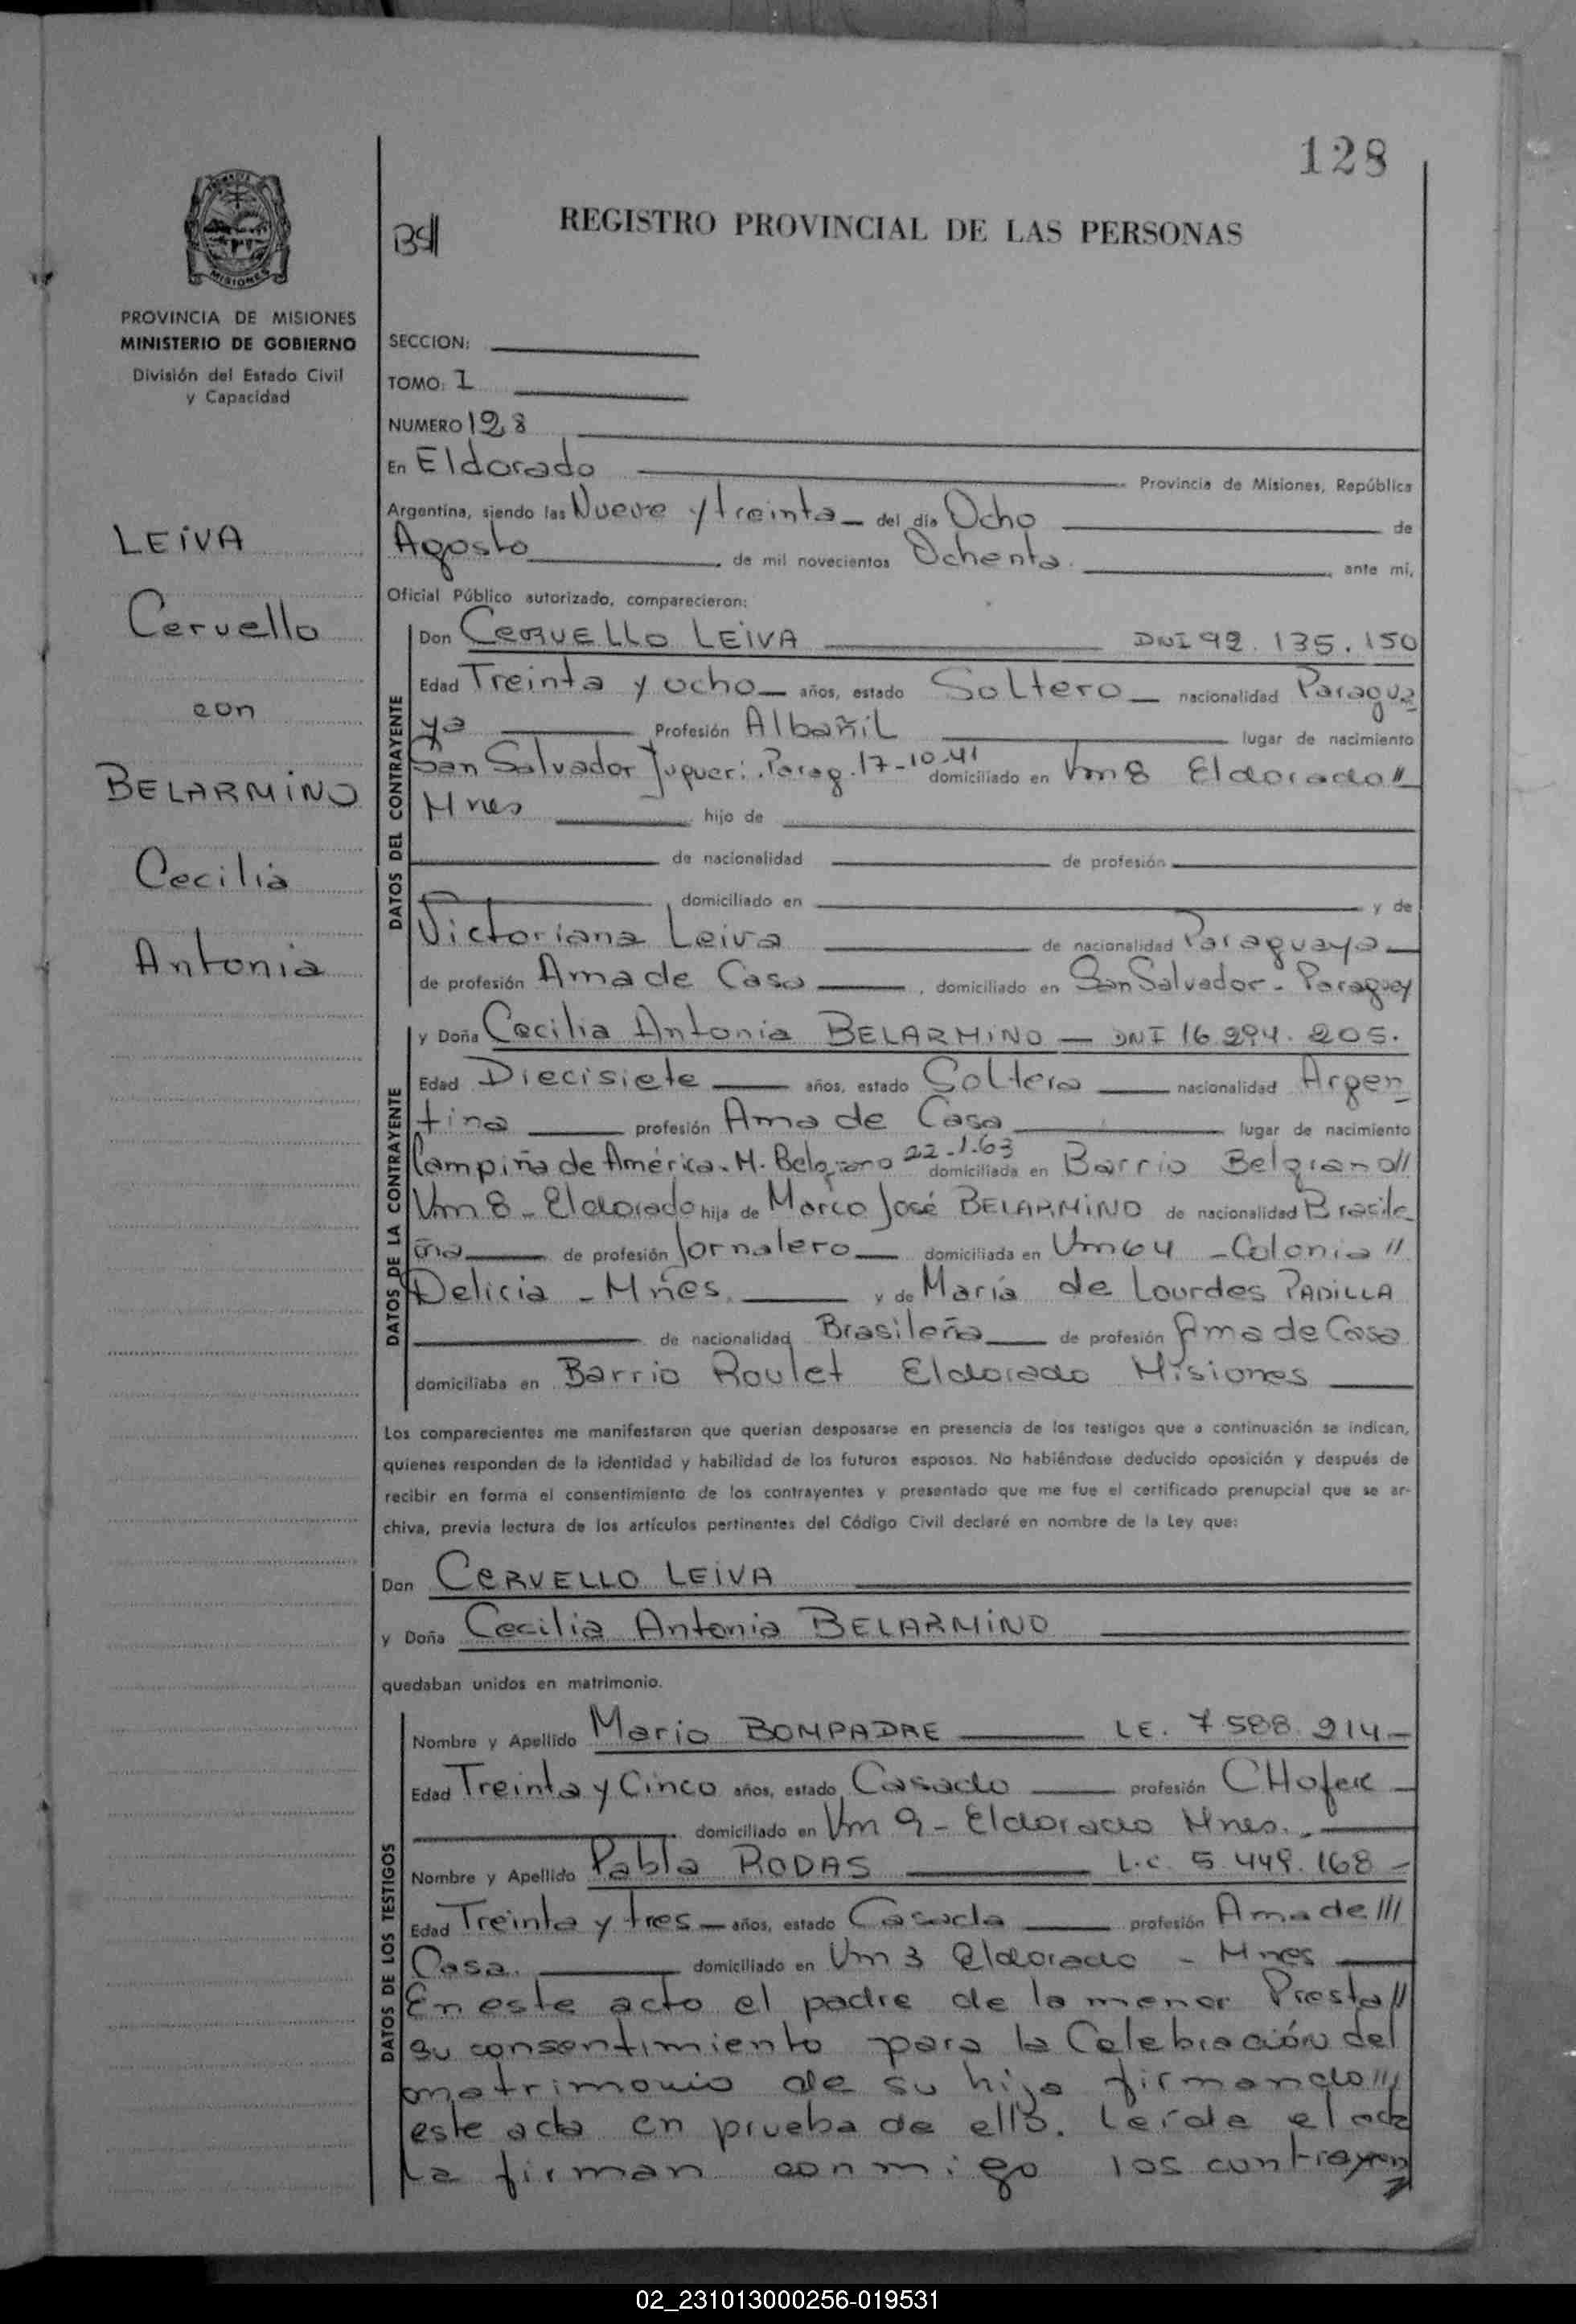 128
REGISTRO PROVINCIAL DE LAS PERSONAS
MISIONES
PROVINCIA DE MISIONES
MINISTERIO DE GOBIERNO
División del Estado Civil
y Capacidad
LEiVA
Cervello
con
BELARMiNO
Cecilia
Antonia
SECCION:
TOMO: 1
NUMERO 128
En Eldorado Provincia de Misiones, República
Argentina, siendo las Nueve y treinta del día Ocho de
Agosto de mil novecientos Ochenta. ante mí,
Oficial Público autorizado, comparecieron:
DATOS DEL CONTRAYENTE
Don CERVELLO LEiVA DNI 92.135.150
Edad Treinta y ocho años, estado Soltero nacionalidad Paragua
ya Profesión Albañil lugar de nacimiento
San Salvador Parag. 17-10-41 domiciliado en Km 8 Eldorado //
Mnes hijo de
de nacionalidad de profesión
domiciliado en y de
Victoriana Leiva de nacionalidad Paraguaya
de profesión Ama de Casa, domiciliado en San Salvador - Paraguay
DATOS DE LA CONTRAYENTE
y Doña Cecilia Antonia BELARMiNO - DNI 16.294.205.
Edad Diecisiete años, estado Soltera nacionalidad Argen
tina profesión Ama de Casa lugar de nacimiento
Campiña de América. M. Belgrano 22-1-63 domiciliada en Barrio Belgrano //
Km 8 - Eldorado hija de Marco José BELARMiNO de nacionalidad Brasile
ña de profesión Jornalero domiciliada en Km 64 - Colonia //
Delicia - Mñes. y de María de Lourdes PADILLA
de nacionalidad Brasileña de profesión Ama de Casa
domiciliaba en Barrio Roulet Eldorado Misiones
Los comparecientes me manifestaron que querían desposarse en presencia de los testigos que a continuación se indican,
quienes responden de la identidad y habilidad de los futuros esposos. No habiéndose deducido oposición y después de
recibir en forma el consentimiento de los contrayentes y presentado que me fue el certificado prenupcial que se ar-
chiva, previa lectura de los artículos pertinentes del Código Civil declaré en nombre de la Ley que:
Don CERVELLO LEiVA
y Doña Cecilia Antonia BELARMiNO
quedaban unidos en matrimonio.
DATOS DE LOS TESTIGOS
Nombre y Apellido Mario BOMPADRE L.E. 7.588.214-
Edad Treinta y Cinco años, estado Casado profesión CHofer
domiciliado en Km 9 - Eldorado Mnes.
Nombre y Apellido Pabla RODAS L.C. 5.449.168-
Edad Treinta y tres años, estado Casada profesión Ama de ///
Casa. domiciliado en Km 3 Eldorado - Mnes
En este acto el padre de la menor Presta //
su consentimiento para la Celebración del
matrimonio de su hija firmando ///
este acta en prueba de ello. Leída el acta
la firman conmigo los contrayen
02_231013000256-019531